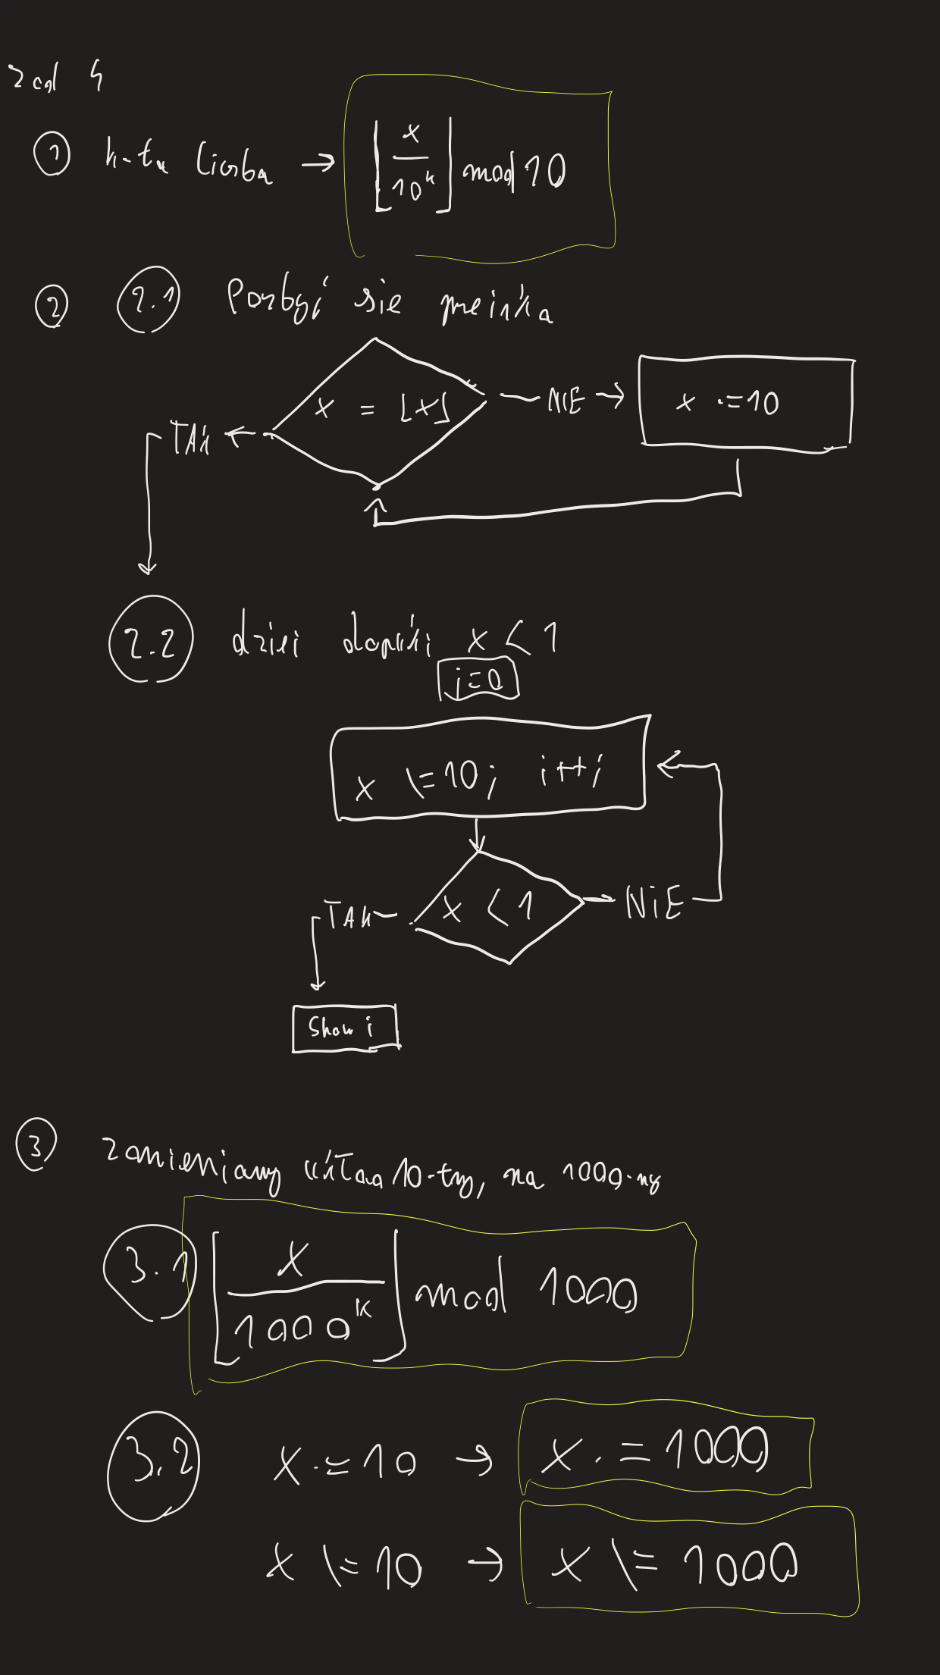 zad 4
① k-ta liczba → ⌊x/10^k⌋ mod 10
② 2.1 Pozbyć się przecinka
x = ⌊x⌋ NIE → x ·=10
TAK
2.2 dziel dopóki x < 1
i=0
x \=10; i++;
x < 1 NiE
TAK
Show i
③ zamieniamy układ 10-ty, na 1000-ny
3.1 ⌊x/1000^k⌋ mod 1000
3.2 x ·= 10 → x ·= 1000
x \= 10 → x \= 1000